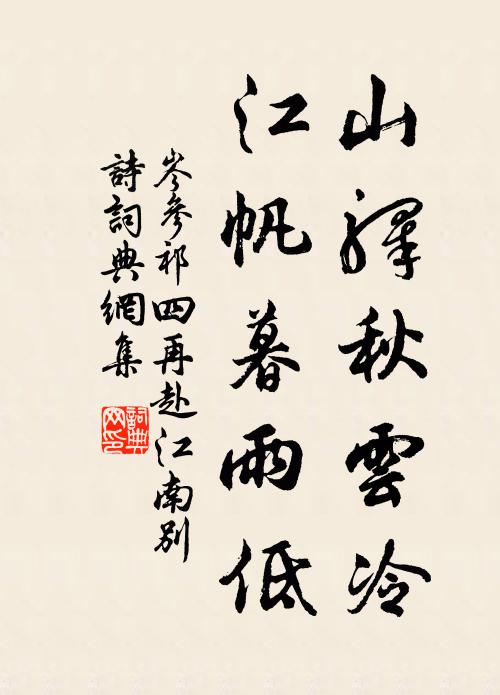 山驛秋雲冷
江帆暮雨低
岑參祁四再赴江南別
詩詞典網集
詞典
网印